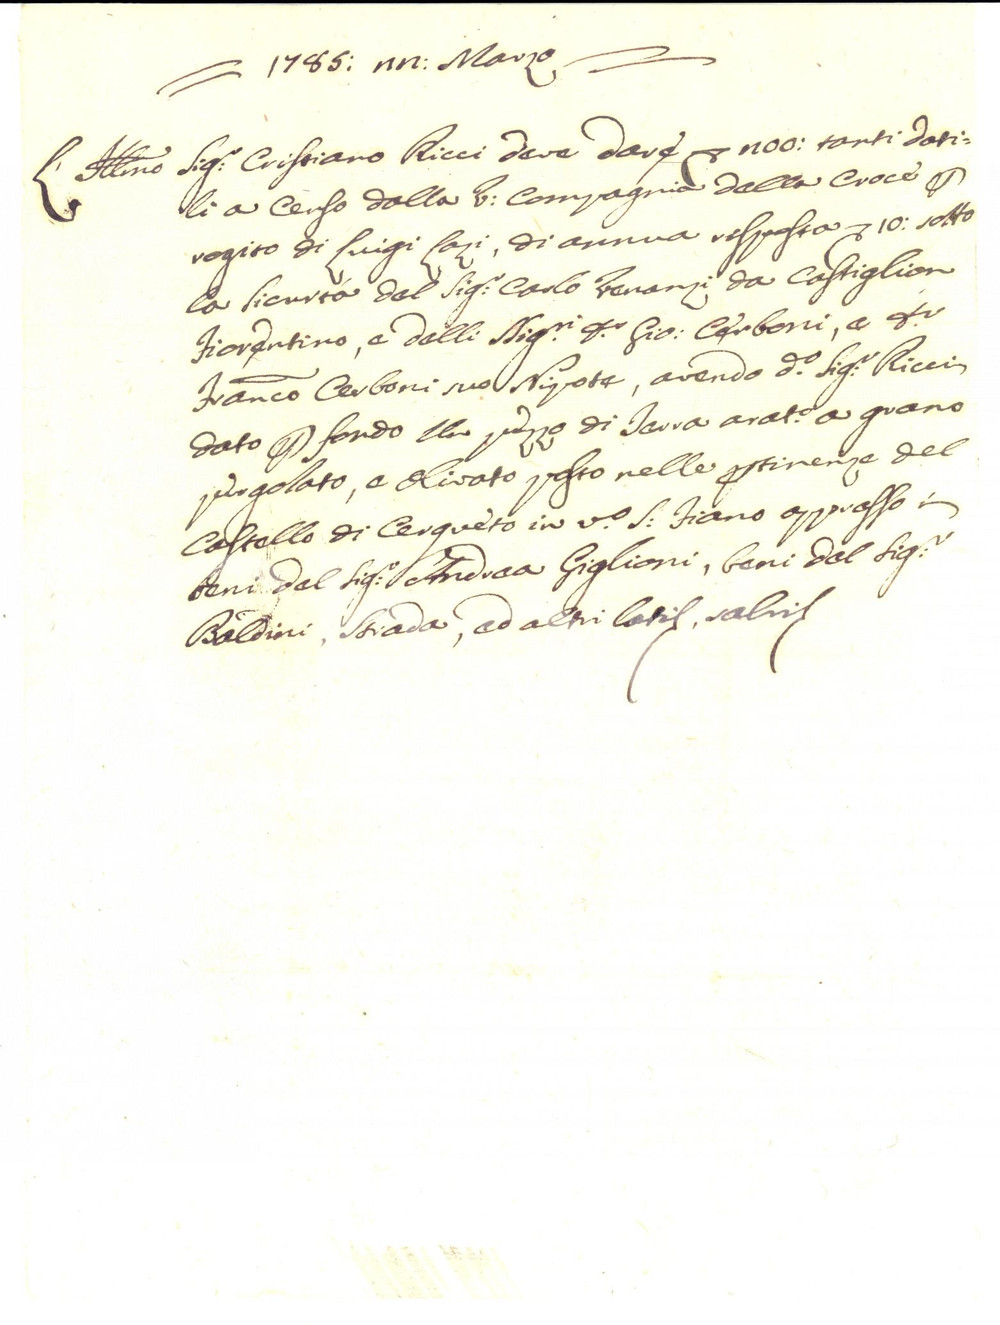 1785: nn: Marzo
L' Illmo Sig.r Cristiano Ricci deve dare ∇ noo: tanti dati=
li a Censo dalla V: Compagnia della Croce p
rogito di Luigi Lazi, di annua risposta ∇ 10: sotto
la sicurtà del Sig.r Carlo Venanzi da Castiglion
Fiorentino, e delli Sig.ri D.r Gio: Cerboni, e D.r
Franco Cerboni suo Nipote, avendo d.o Sig.r Ricci
dato p fondo Un pezzo di Terra arat.o a grano
pergolato, e olivato posto nelle ptinenze del
Castello di Cerqueto in v.o S: Fiano appresso i
beni del Sig.r Andrea Giglioni, beni del Sig.r
Baldini, Strada, ed altri latis, salvis